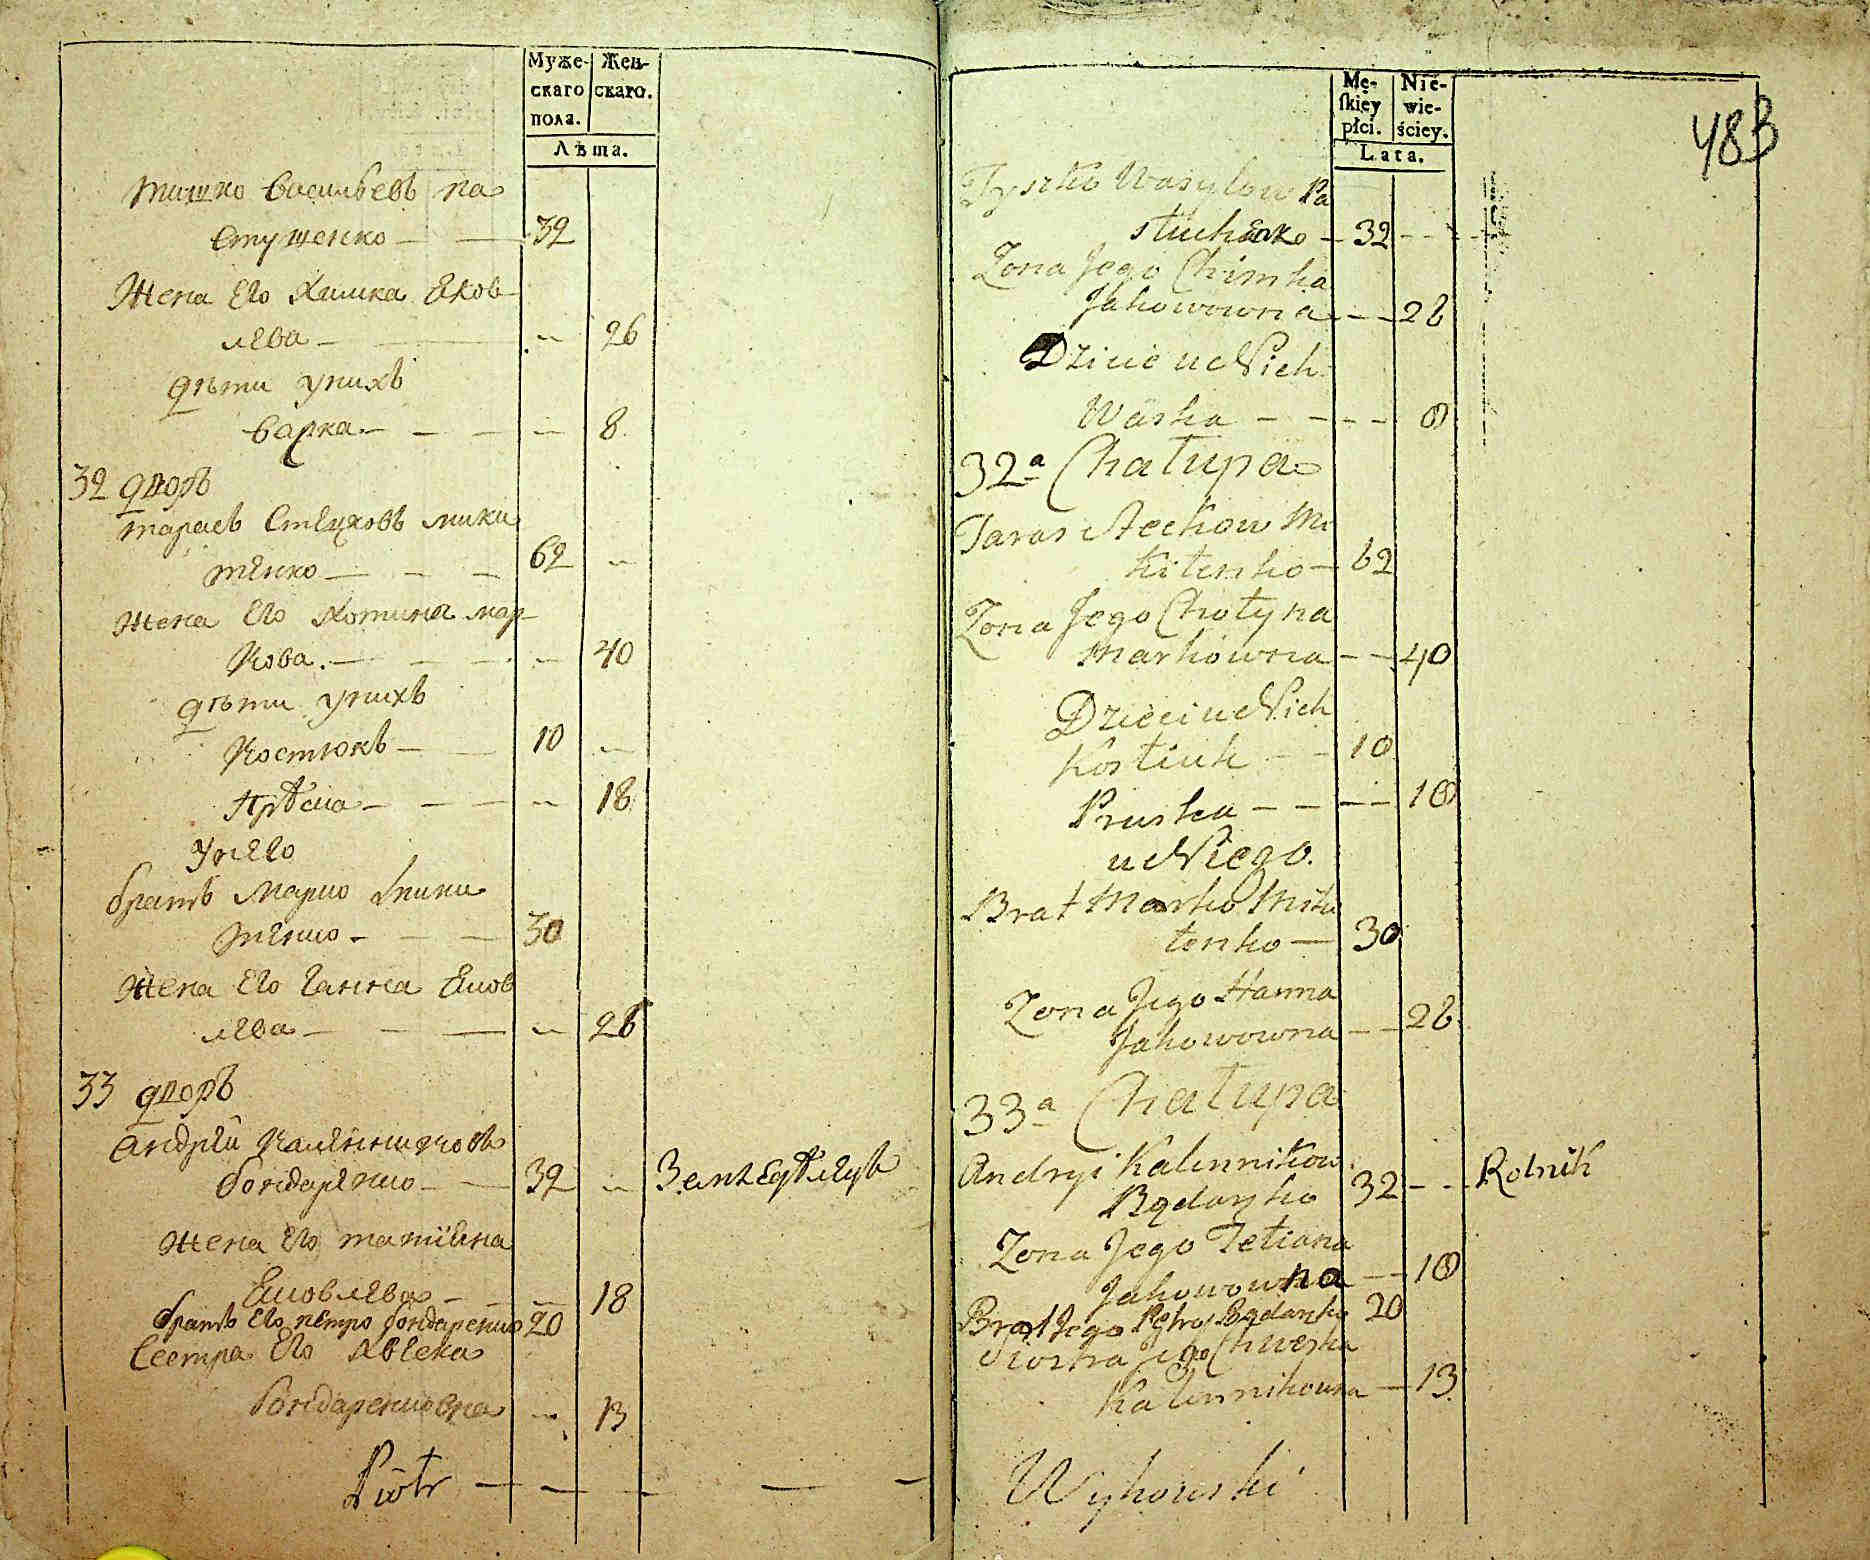 Муже-
скаго
пола.
Жен-
скаго.
Лѣта.
тишко Васильевъ па
стушенко — — 32
Жена Его Химка Яков
лева — — 26
дѣти унихъ
Варка — — — 8
32 дворъ
тарасъ Стецковъ мики
тенко — — — 62
Жена Его Хотина мар-
кова. — — — — 40
дѣти унихъ
Костюкъ — — 10
Прѣска — — — — 18
Унего
братъ Марко Мики
тенко — — — 30
Жена Его Ганна Яков
лева — — — — 26
33 дворъ
Андрей Калѣнниковъ
бондаренко — — 32 Земледѣлецъ
Жена Его татіяна
Яковлева — — — 18
братъ Его петро бондаренко 20
Сестра Его Хвеска
бондаренковна — 13
Piotr — — — — —
483
Mę-
skiey
płci.
Nie-
wie-
ściey.
Lata.
Tyszko Wasylow Pa
stuchenko — 32 — —
Zona Jego Chimka
Jakowowna — — 26
Dzieci u Nich
Warka — — — — 8
32a Chałupa
Taras Steckow Mi
kitenko — 62
Zona Jego Chotyna
Markowna — — 40
Dzieci u Nich
Kostiuk — — 10
Pruska — — — — 18
u Niego.
Brat Marko Miki
tenko — 30
Zona Jego Hanna
Jakowowna — — 26
33a Chałupa
Andryi Kalinnikow
Bądarenko 32 — — Rolnik
Zona Jego Tetiana
Jakowowna — — 18
Brat Jego Petro Bądarenko 20
Siostra jego Chweska
Kalinnikowna — 13
Wyhowski